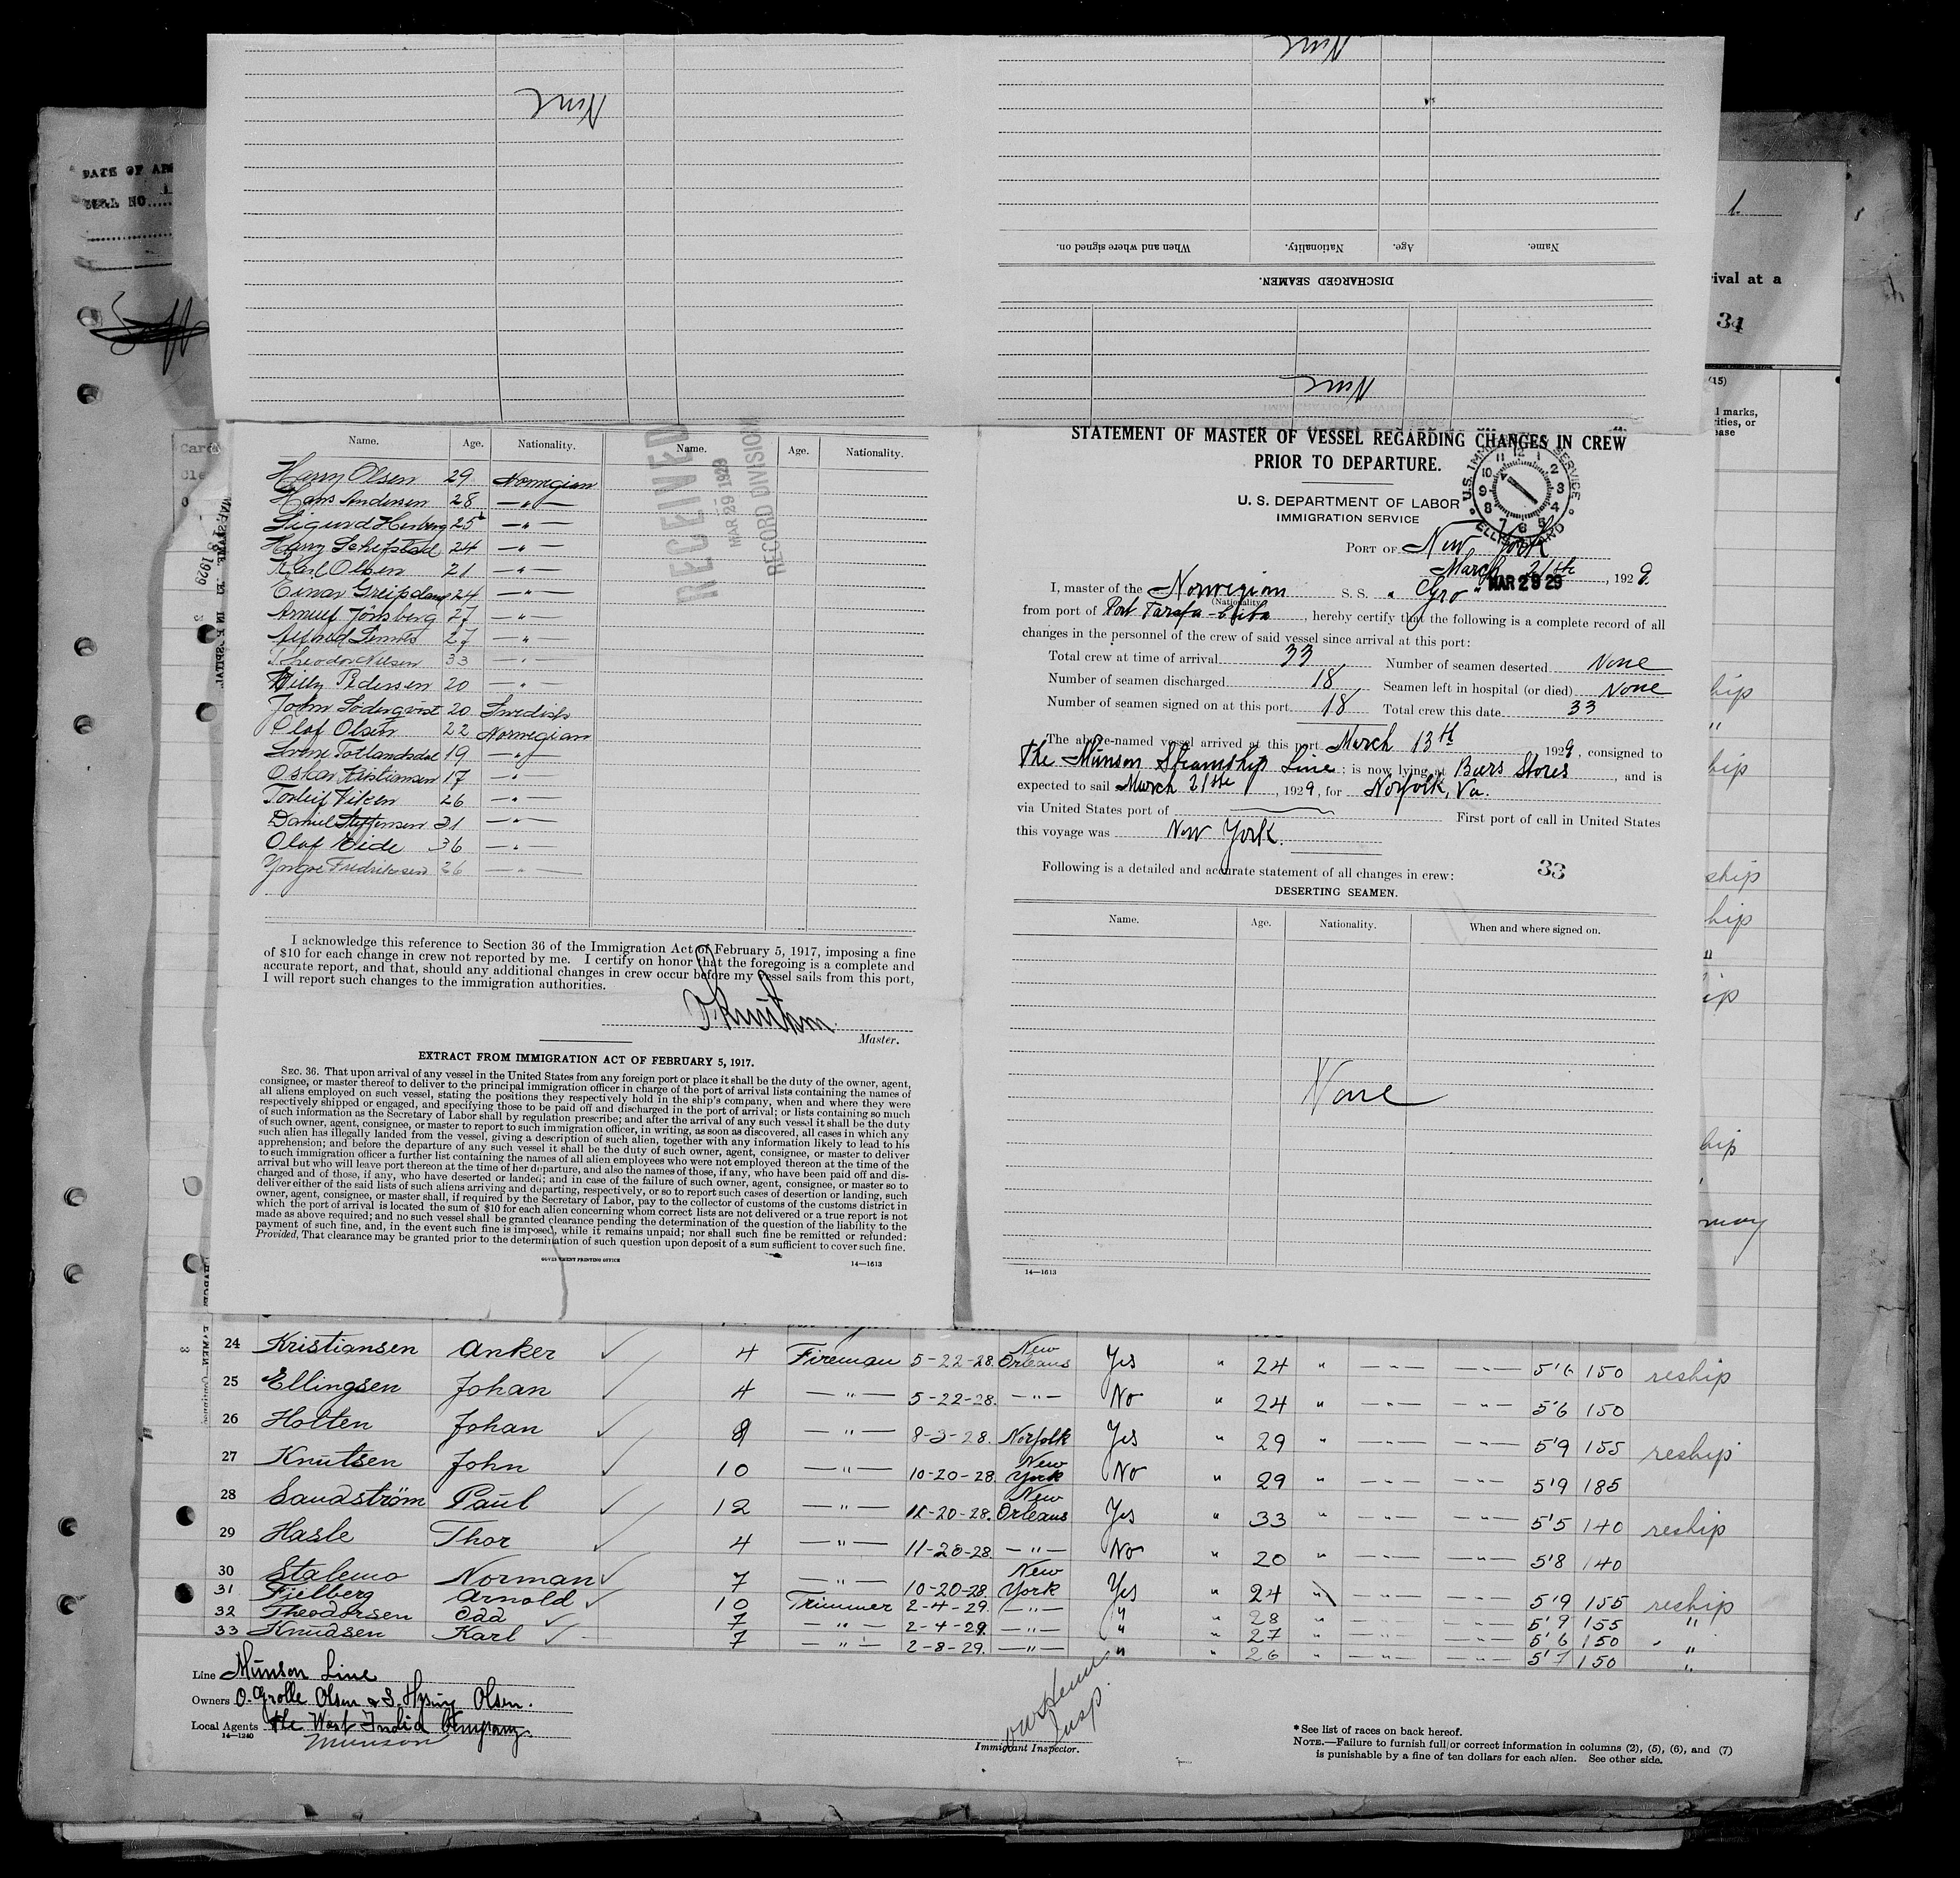 None
None
Name. Age. Nationality. When and where signed on.
DISCHARGED SEAMEN.
None
DATE OF
1
ival at a
34
(15)
l marks,
rities, or
ease
Name. Age. Nationality. Name. Age. Nationality.
Harry Olsen 29 Norwegian
Hans Andersen 28 — " —
Sigurd 25 — " —
Harry 24 — " —
Karl Olsen 21 — " —
Einar Greipsland 24 — " —
Jönsberg 27 — " —
27 — " —
Theodor Nilsen 33 — " —
Willy Pedersen 20 — " —
John Söderqvist 20 Swedish
Olaf Olsen 22 Norwegian
Totlandsdal 19 — " —
Oskar Kristiansen 17 — " —
Torleif Viken 26 — " —
Daniel Steffensen 31 — " —
Olaf Eide 36 — " —
Yngve Fredriksen 26 — " —
RECEIVED
MAR 26 1929
RECORD DIVISION
I acknowledge this reference to Section 36 of the Immigration Act of February 5, 1917, imposing a fine
of $10 for each change in crew not reported by me. I certify on honor that the foregoing is a complete and
accurate report, and that, should any additional changes in crew occur before my vessel sails from this port,
I will report such changes to the immigration authorities.
Master.
EXTRACT FROM IMMIGRATION ACT OF FEBRUARY 5, 1917.
SEC. 36. That upon arrival of any vessel in the United States from any foreign port or place it shall be the duty of the owner, agent,
consignee, or master thereof to deliver to the principal immigration officer in charge of the port of arrival lists containing the names of
all aliens employed on such vessel, stating the positions they respectively hold in the ship's company, when and where they were
respectively shipped or engaged, and specifying those to be paid off and discharged in the port of arrival; or lists containing so much
of such information as the Secretary of Labor shall by regulation prescribe; and after the arrival of any such vessel it shall be the duty
of such owner, agent, consignee, or master to report to such immigration officer, in writing, as soon as discovered, all cases in which any
such alien has illegally landed from the vessel, giving a description of such alien, together with any information likely to lead to his
apprehension; and before the departure of any such vessel it shall be the duty of such owner, agent, consignee, or master to deliver
to such immigration officer a further list containing the names of all alien employees who were not employed thereon at the time of the
arrival but who will leave port thereon at the time of her departure, and also the names of those, if any, who have been paid off and dis-
charged and of those, if any, who have deserted or landed; and in case of the failure of such owner, agent, consignee, or master so to
deliver either of the said lists of such aliens arriving and departing, respectively, or so to report such cases of desertion or landing, such
owner, agent, consignee, or master shall, if required by the Secretary of Labor, pay to the collector of customs of the customs district in
which the port of arrival is located the sum of $10 for each alien concerning whom correct lists are not delivered or a true report is not
made as above required; and no such vessel shall be granted clearance pending the determination of the question of the liability to the
payment of such fine, and, in the event such fine is imposed, while it remains unpaid; nor shall such fine be remitted or refunded:
Provided, That clearance may be granted prior to the determination of such question upon deposit of a sum sufficient to cover such fine.
GOVERNMENT PRINTING OFFICE 14—1613
STATEMENT OF MASTER OF VESSEL REGARDING CHANGES IN CREW
PRIOR TO DEPARTURE.
U. S. DEPARTMENT OF LABOR
IMMIGRATION SERVICE
U.S. IMMIGRATION SERVICE ELLIS ISLAND
PORT OF New York
March 21st, 1929
MAR 2 9 29
I, master of the Norwegian S. S. "Gro"
(Nationality)
from port of Port Tarafa - Cuba, hereby certify that the following is a complete record of all
changes in the personnel of the crew of said vessel since arrival at this port:
Total crew at time of arrival 33 Number of seamen deserted None
Number of seamen discharged 18 Seamen left in hospital (or died) None
Number of seamen signed on at this port 18 Total crew this date 33
The above-named vessel arrived at this port March 13th 1929, consigned to
The Munson Steamship Line; is now lying at Stores, and is
expected to sail March 21st, 1929, for Norfolk, Va.
via United States port of First port of call in United States
this voyage was New York.
Following is a detailed and accurate statement of all changes in crew: 33
DESERTING SEAMEN.
Name. Age. Nationality. When and where signed on.
None
14—1613
24 Kristiansen Anker 4 Fireman 5-22-28. New Orleans Yes " 24 " — " — — " — 5'6 150 reship
25 Ellingsen Johan 4 — " — 5-22-28. — " — No " 24 " — " — — " — 5'6 150
26 Holten Johan 9 — " — 8-3-28. Norfolk Yes " 29 " — " — — " — 5'9 155 reship
27 Knutsen John 10 — " — 10-20-28. New York No " 29 " — " — — " — 5'9 185
28 Sandström Paul 12 — " — 11-20-28. New Orleans Yes " 33 " — " — — " — 5'5 140 reship
29 Hasle Thor 4 — " — 11-20-28. — " — No " 20 " — " — — " — 5'8 140
30 Stalemo Norman 7 — " — 10-20-28. New York Yes " 24 " — " — — " — 5'9 155 reship
31 Fjelberg Arnold 10 Trimmer 2-4-29. — " — " " 28 " — " — — " — 5'9 155 "
32 Theodorsen Odd 7 — " — 2-4-29. — " — " " 27 " — " — — " — 5'6 150 "
33 Knudsen Karl 7 — " — 2-8-29. — " — " " 26 " — " — — " — 5'7 150 "
Line Munson Line
Owners O. Grolle Olsen & S. Hysing Olsen.
Local Agents The West India Company.
Munson
14—1240
Insp.
Immigrant Inspector.
* See list of races on back hereof.
NOTE.—Failure to furnish full or correct information in columns (2), (5), (6), and (7)
is punishable by a fine of ten dollars for each alien. See other side.